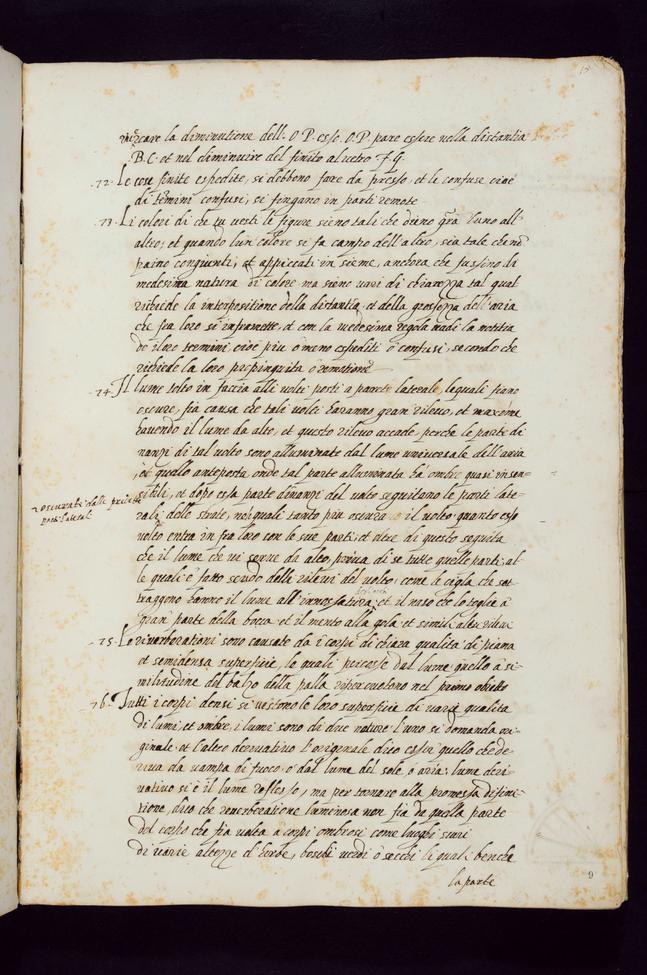 ricare la diminutione dell. O P. esso. O.P. pare essere nella distantia
B.C. et nel diminuire del finito al vetro F.G.
72. Le cose finite espedite, si debbono fare da presso, et le confuse cioè
da termini confusi, si fingano in parti remote
73. Li colori di che tu vesti le figure sieno tali che dieno gra l'uno all'
altro; et quando l'un colore si fa campo dell'altro, sia tale che no
paino congiunti, et appiccati in sieme, anchora che fussino la
medesima natura di colore ma sieno vari di chiarezza tal qual
richiede la interpositione della distantia, et della grossezza dell'aria
che fra loro si inframette, et con la medesima regola vadi la notitia
de i loro termini, cioè piu o meno espediti o confusi, secondo che
richiede la loro propinquita o remotione
74. Il lume tolto in faccia alli volti posti a parete laterale, lequali siano
oscure, fia causa che tali volti haranno gran rilevo, et maxime
havendo il lume da alto, et questo rilevo accade, perche le parte di
nanzi di tal volto sono alluminate dal lume universale dell'aria
et quello anteposta onde tal parte alluminata ha ombre quasi insen=
sibili, et dopo essa parte dinanzi del volto seguitano le parti late=
2 oscurati dalle predette
pareti laterali
rali delle strade, nei quali tanto piu oscura il volto quanto esso
volto entra in fra loro con le sue parti, et oltre di questo seguita
che il lume che vi serve da alto, priva di se tutte quelle parti, al
le quali e fatto scudo delli rilevi del volto, come le ciglia che sot
traggono hanno il lume all'innossatura, et il naso che lo toglie a
gran parte della bocca et il mento alla gola, et simili altri rilevi
75. Le riverberationi sono causate da i corpi di chiara qualita di piana
et semidensa superficie, le quali percosse dal lume quello a si=
militudine del balzo della palla ripercuotono nel primo obietto
76. Tutti i corpi densi si vestono le loro superficie di varie qualita
di lumi, et ombre, i lumi sono di due nature l'uno si domanda ori=
ginale et l'altro derivativo l'originale dico esser quello che de=
riva da vampa di fuoco, o dal lume del sole o aria; lume deri=
vativo si è il lume reflesso, ma per tornare alla promessa difini=
tione, dico che reverberatione luminosa non fia da quella parte
del corpo che fia volta a corpi ombrosi come luoghi scuri
di varie altezze d'herbe, boschi verdi o secchi li quali benche
la parte
9